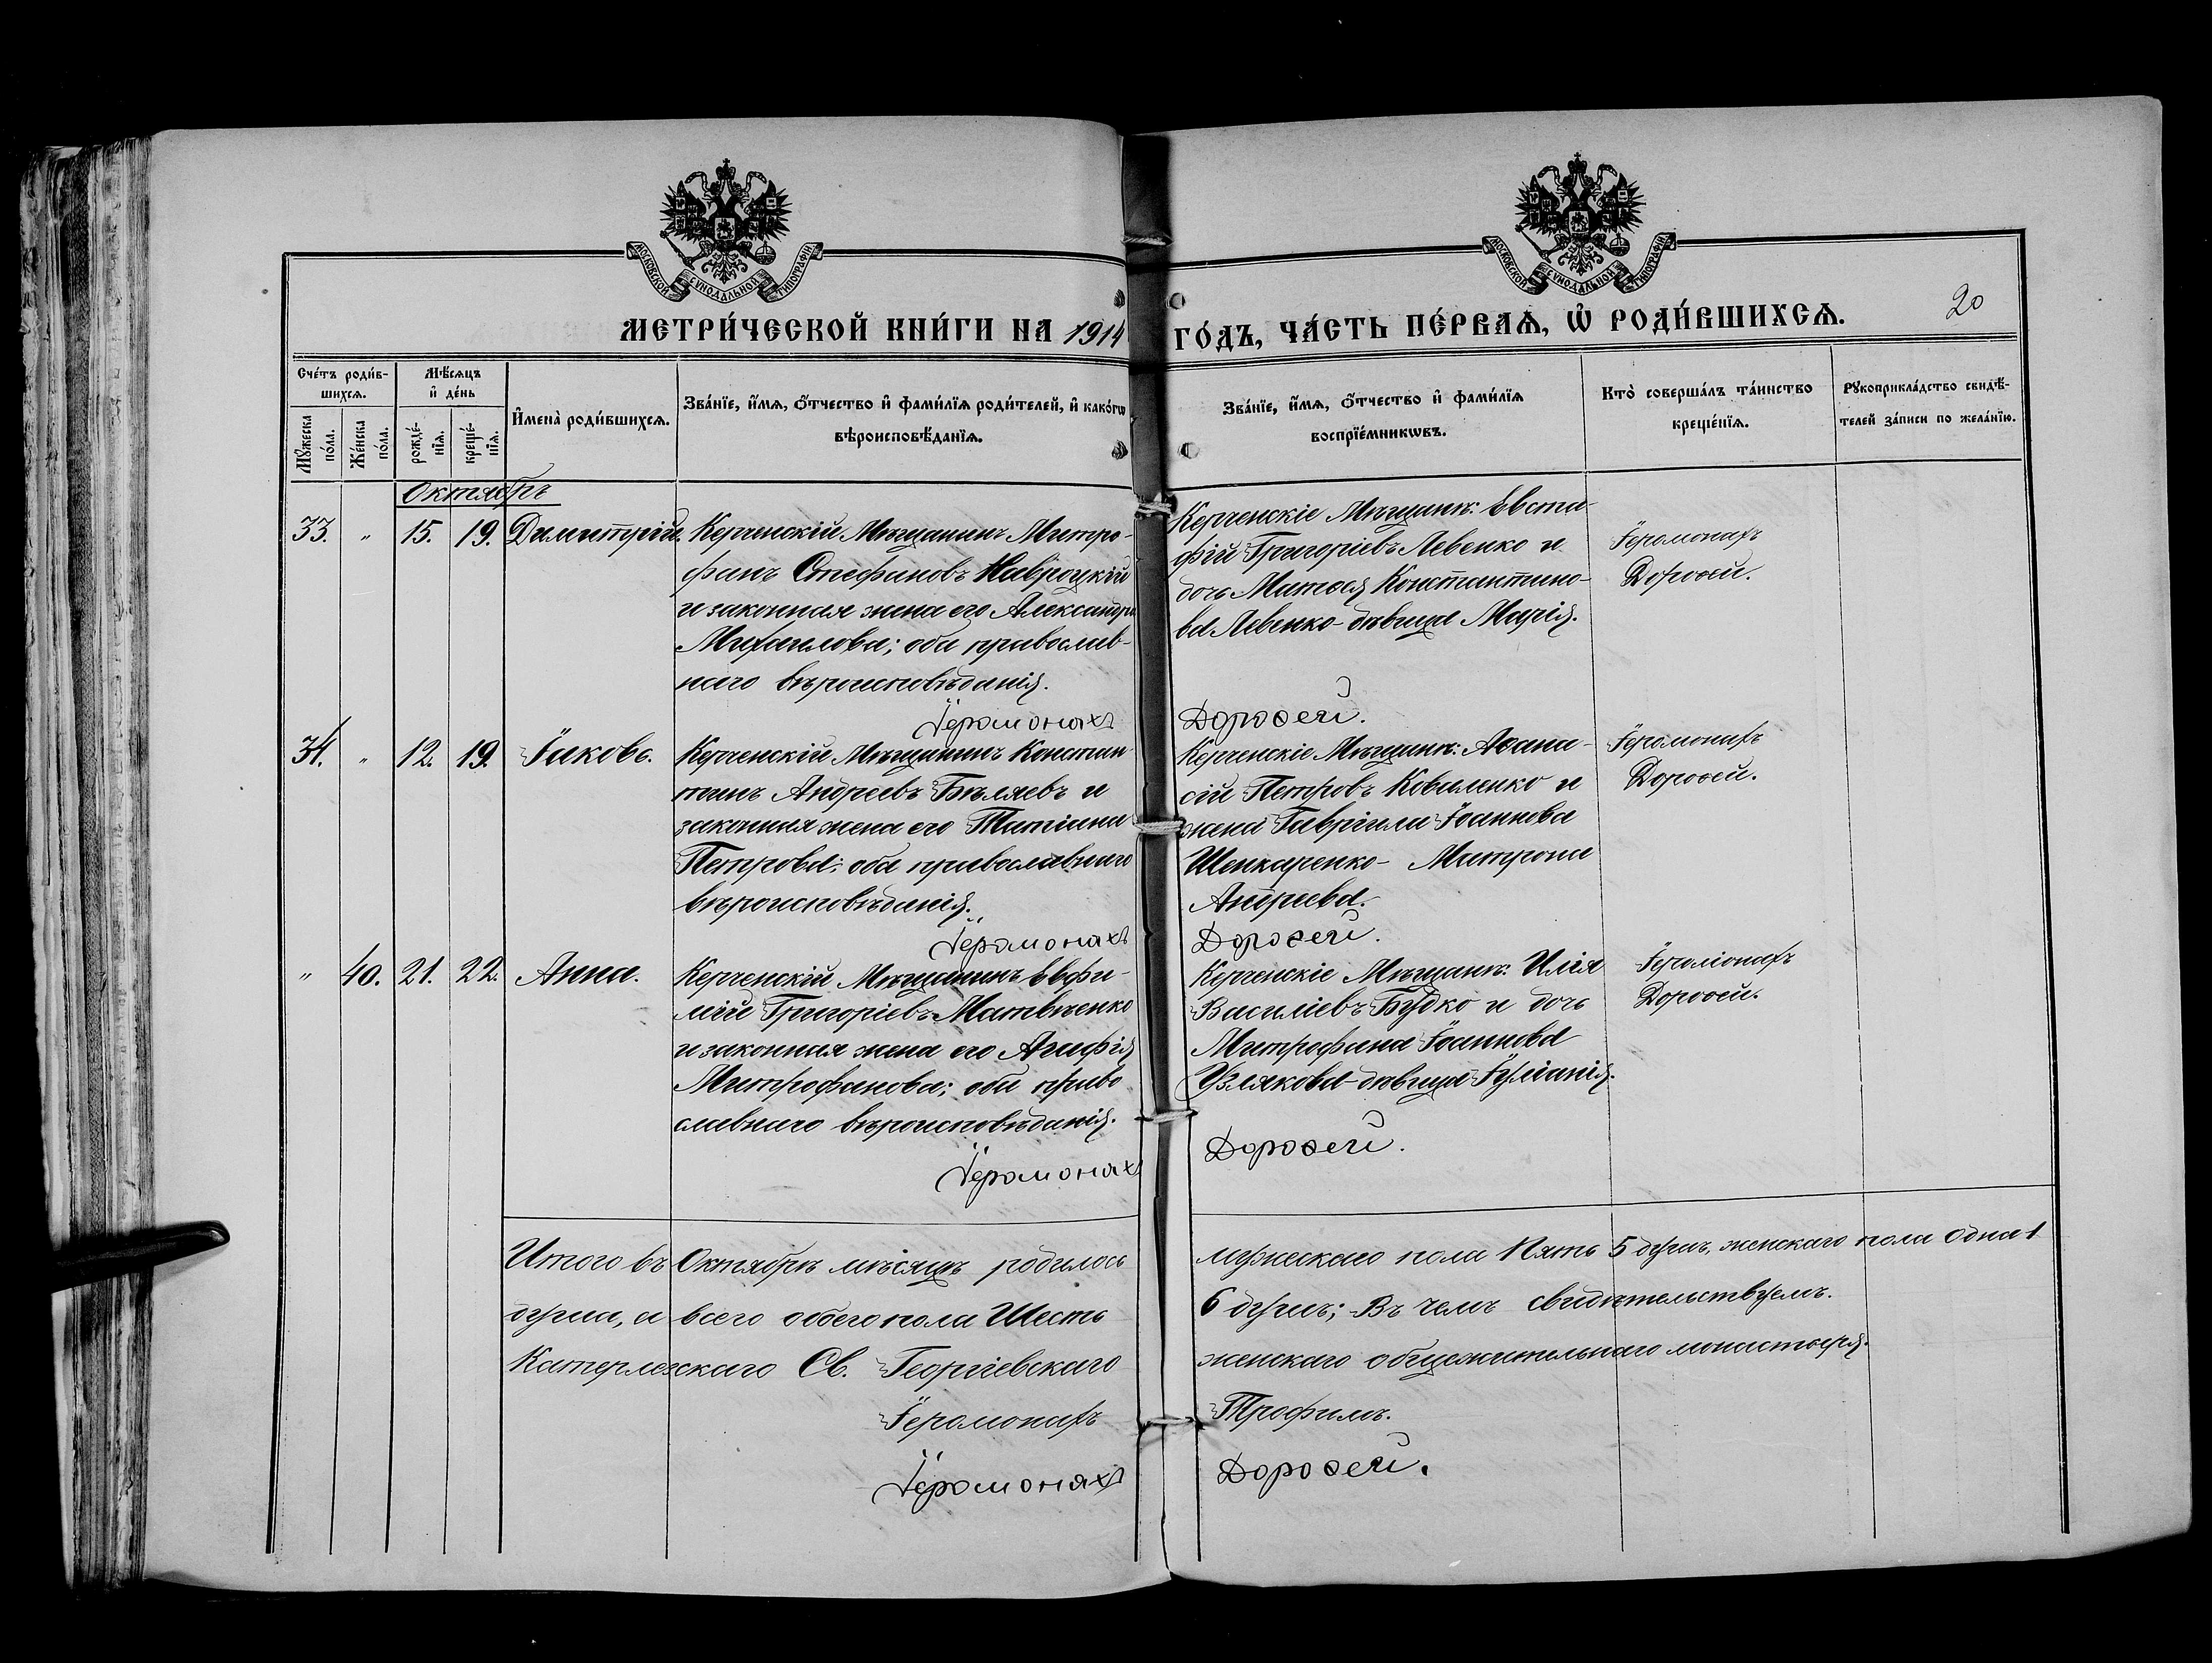 МОСКОВСКОЙ СѴНОДАЛЬНОЙ ТИПОГРАФІИ
МОСКОВСКОЙ СѴНОДАЛЬНОЙ ТИПОГРАФІИ
МЕТРИ́ЧЕСКОЙ КНИ́ГИ НА 1914 ГО́ДЪ, ЧА́СТЬ ПЕ́РВАѦ, Ѡ҆ РОДИ́ВШИХСѦ.
20
Сче́тъ роди́в-
шихсѧ.
Мꙋжеска по́ла.
Же́нска по́ла.
Мѣ́сѧцъ
и҆ де́нь
рожде́-
нїѧ.
креще́-
нїѧ.
И҆мена̀ роди́вшихсѧ.
Зва́нїе, и҆́мѧ, ѻ҆́тчество и҆ фами́лїѧ роди́телей, и҆ како́гѡ
вѣроисповѣ́данїѧ.
Зва́нїе, и҆́мѧ, ѻ҆́тчество и҆ фами́лїѧ
воспрїе́мникѡвъ.
Кто̀ соверша́лъ та́инство
креще́нїѧ.
Рꙋкоприкла́дство свидѣ́-
телей за́писи по жела́нїю.
Октябрь
33. „ 15. 19. Димитрій.
Керченскій Мѣщанинъ Митро-
фанъ Стефановъ Навроцкій
и законная жена его Александра
Михаилова; оба православ-
наго вѣроисповѣданія.
Керченскіе Мѣщане: Евста-
фій Григоріевъ Левенко и
дочь Матѳея Константино-
ва Левенко - дѣвица Марія.
Іеромонахъ
Дороѳей.
Іеромонахъ Дороѳей.
34. „ 12. 19. Іаковъ.
Керченскій Мѣщанинъ Констан-
тинъ Андреевъ Бѣляевъ и
законная жена его Татіана
Петрова; оба православнаго
вѣроисповѣданія.
Керченскіе Мѣщане: Аѳана-
сій Петровъ Коваленко и
жена Гавріила Іоаннова
Шенкаренко - Матрона
Андреева.
Іеромонахъ
Дороѳей.
Іеромонахъ Дороѳей.
„ 40. 21. 22. Анна.
Керченскій Мѣщанинъ Евфи-
мій Григоріевъ Матвѣенко
и законная жена его Агафія
Митрофанова; оба право
славнаго вѣроисповѣданія.
Керченскіе Мѣщане: Илія
Василіевъ Будко и дочь
Митрофана Іоаннова
Узлякова - дѣвица Іуліанія.
Іеромонахъ
Дороѳей.
Іеромонахъ Дороѳей.
Итого въ Октябрѣ мѣсяцѣ родилось мужескаго пола Пять 5 душъ, женскаго пола Одна 1
душа, а всего обоего пола Шесть 6 душъ; Въ чемъ свидѣтельствуемъ.
Катерлезскаго Св. Георгіевскаго женскаго общежительнаго монастыря.
Іеромонахъ Трофимъ.
Іеромонахъ Дороѳей.